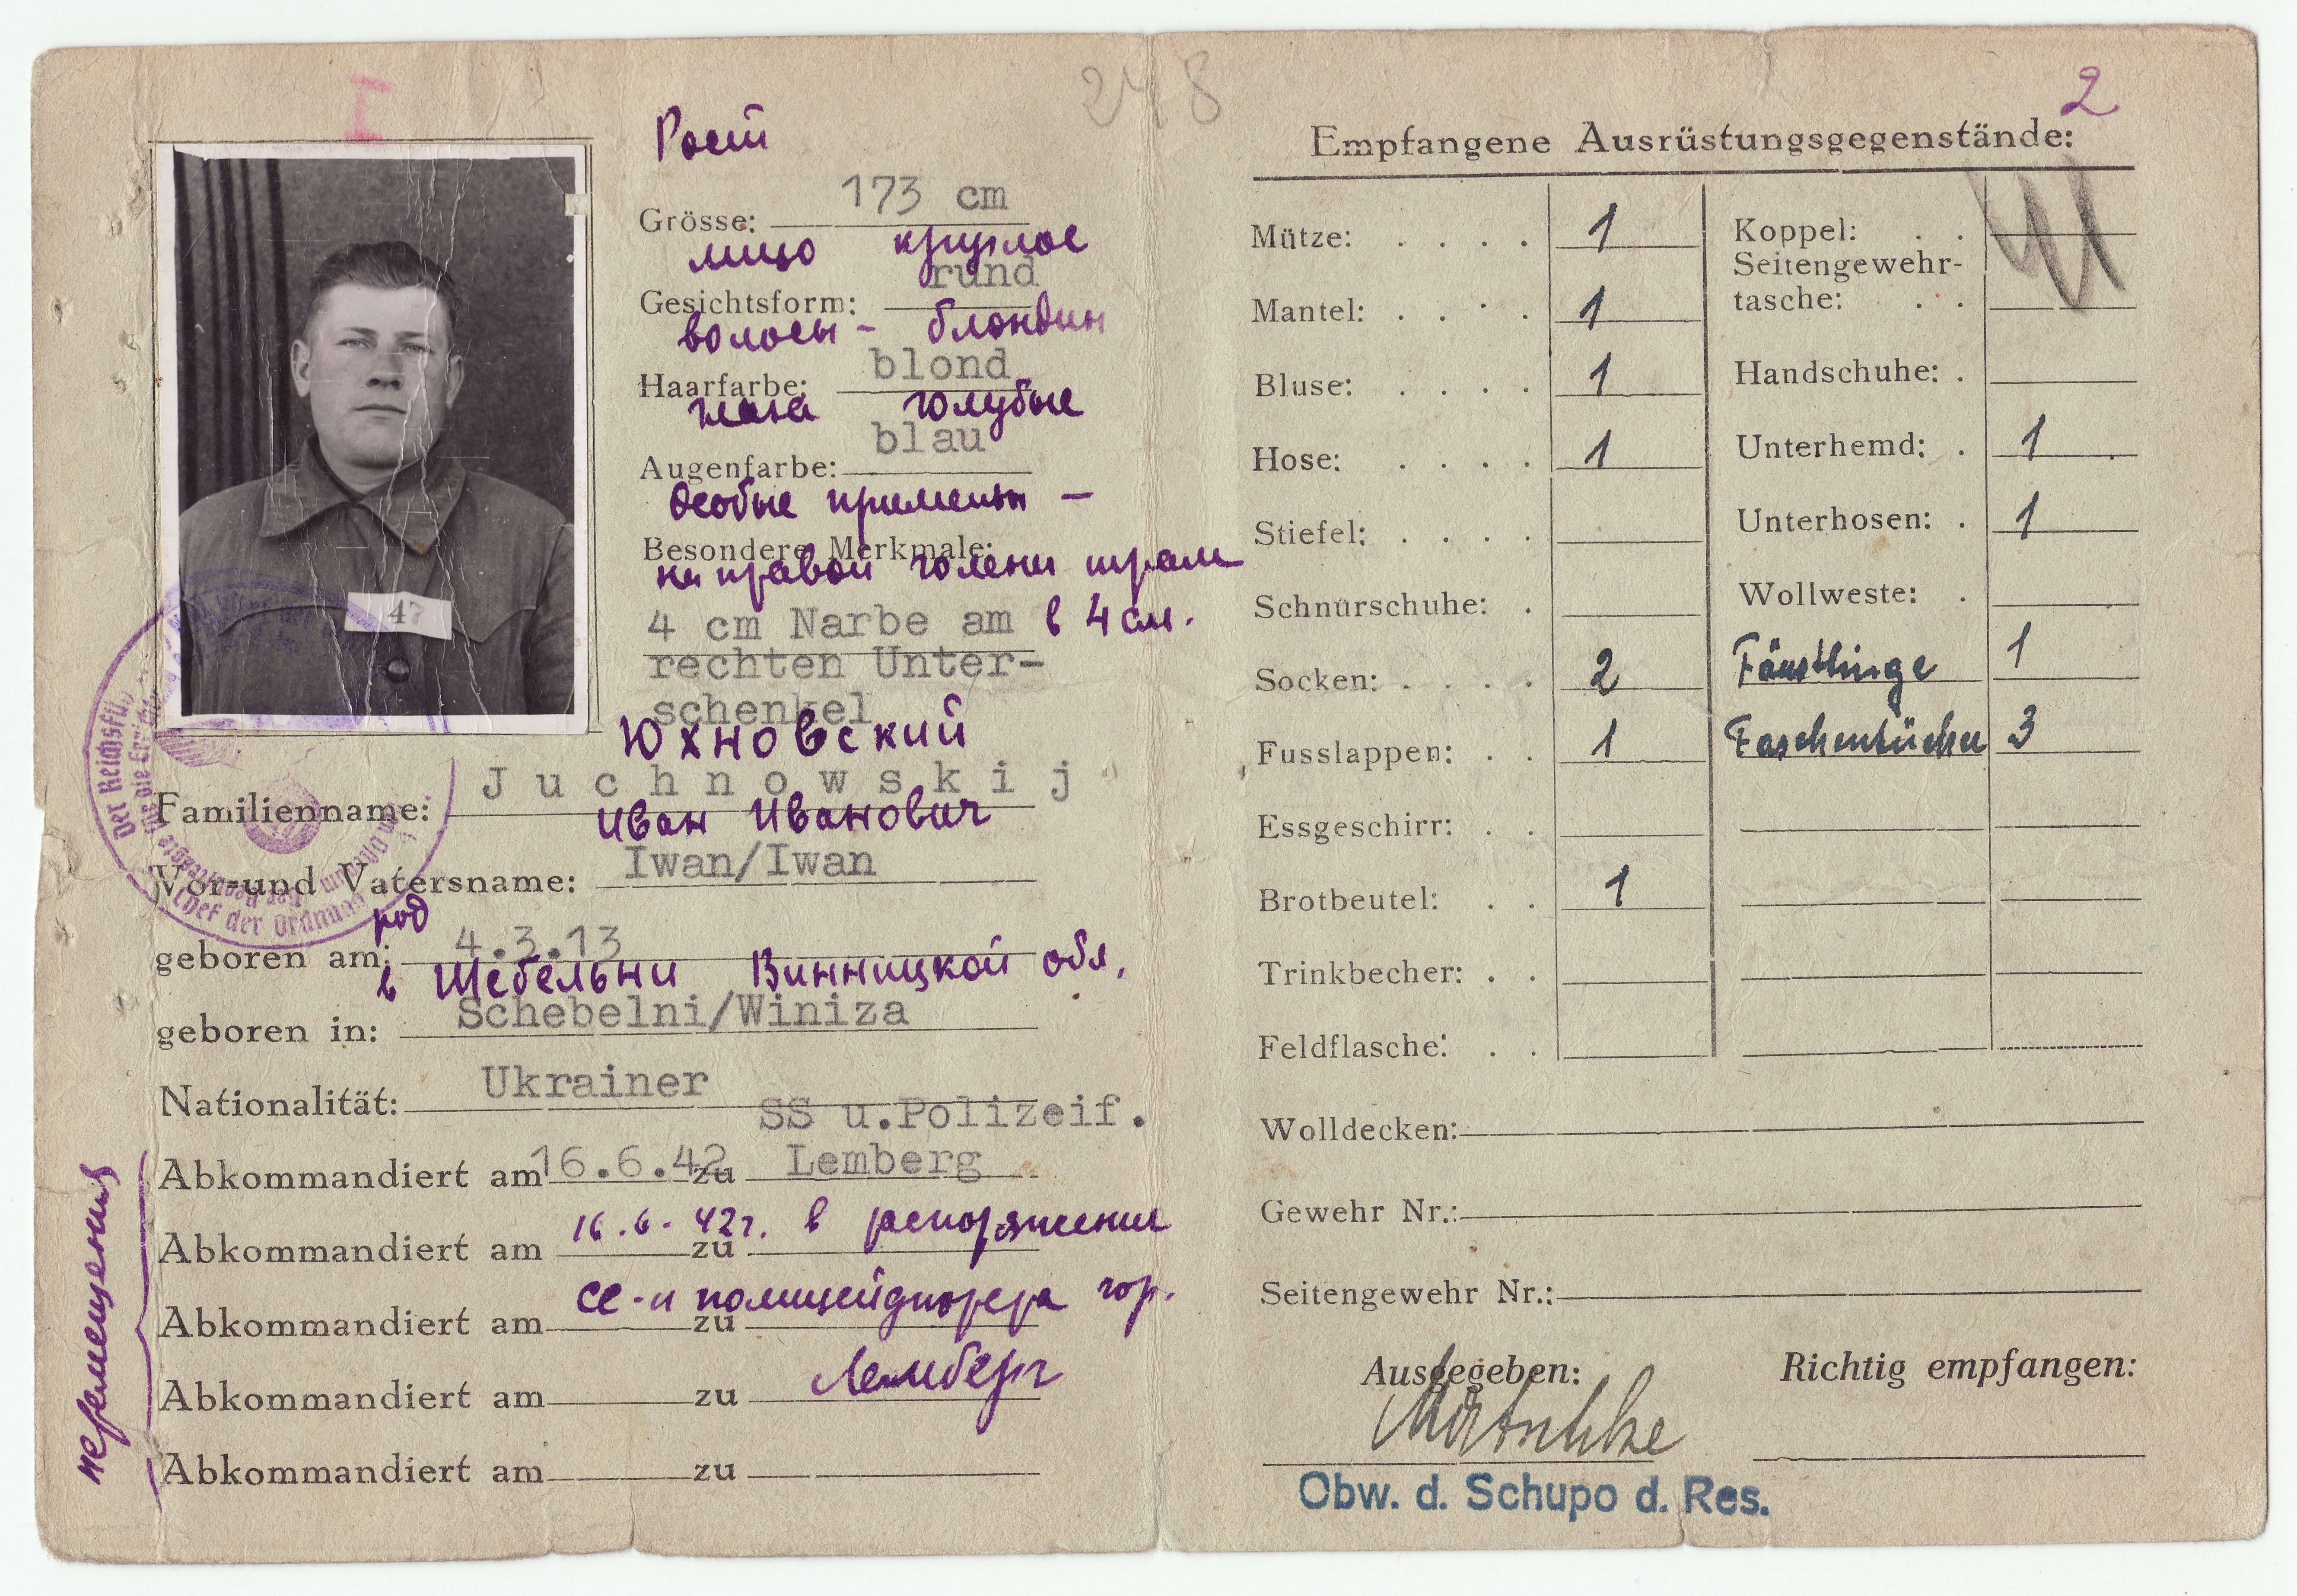 I
248
Рост
173 cm
Grösse:
лицо круглое
rund
Gesichtsform:
волосы - блондин
blond
Haarfarbe:
глаза голубые
blau
Augenfarbe:
Особые приметы -
Besondere Merkmale:
на правой голени шрам
4 cm Narbe am в 4 см.
rechten Unter-
schenkel
47
Юхновский
Juchnowskij
Familienname:
Иван Иванович
Iwan/Iwan
Vor-und Vatersname:
род
geboren am: 4.3.13
в Щебельни Винницкой обл.
Schebelni/Winiza
geboren in:
Ukrainer
Nationalität:
SS u.Polizeif.
Abkommandiert am 16.6.42 zu Lemberg
16.6-42г. в распоряжение
Abkommandiert am zu
СС-и полицейфюрера гор.
Abkommandiert am zu
Лемберг
Abkommandiert am zu
Abkommandiert am zu
перемещения
Der Reichsfü
Chef der Ordnung
2
Empfangene Ausrüstungsgegenstände:
Mütze: . . . . 1
Mantel: . . . . 1
Bluse: . . . . 1
Hose: . . . . 1
Stiefel: . . . .
Schnürschuhe: .
Socken: . . . . 2
Fusslappen: . . 1
Essgeschirr: . .
Brotbeutel: . . 1
Trinkbecher: . .
Feldflasche: . .
Koppel: . .
Seitengewehr-
tasche: . .
Handschuhe: .
Unterhemd: . 1
Unterhosen: . 1
Wollweste: .
Fäustlinge 1
Taschentücher 3
Wolldecken:
Gewehr Nr.:
Seitengewehr Nr.:
Ausgegeben:
Richtig empfangen:
Obw. d. Schupo d. Res.